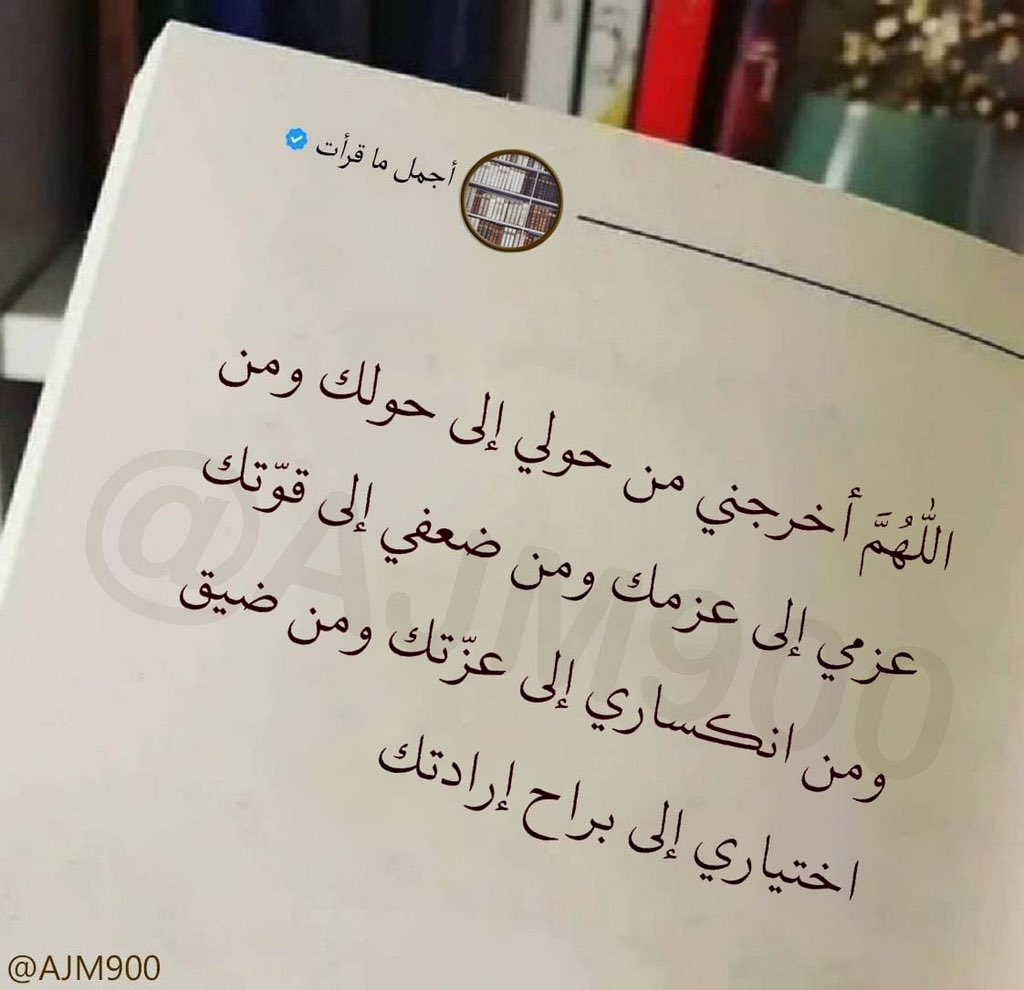 أجمل ما قرأت
اللّٰهُمَّ أخرجني من حولي إلى حولك ومن
عزمي إلى عزمك ومن ضعفي إلى قوّتك
ومن انكساري إلى عزّتك ومن ضيق
اختياري إلى براح إرادتك
@AJM900
@AJM900